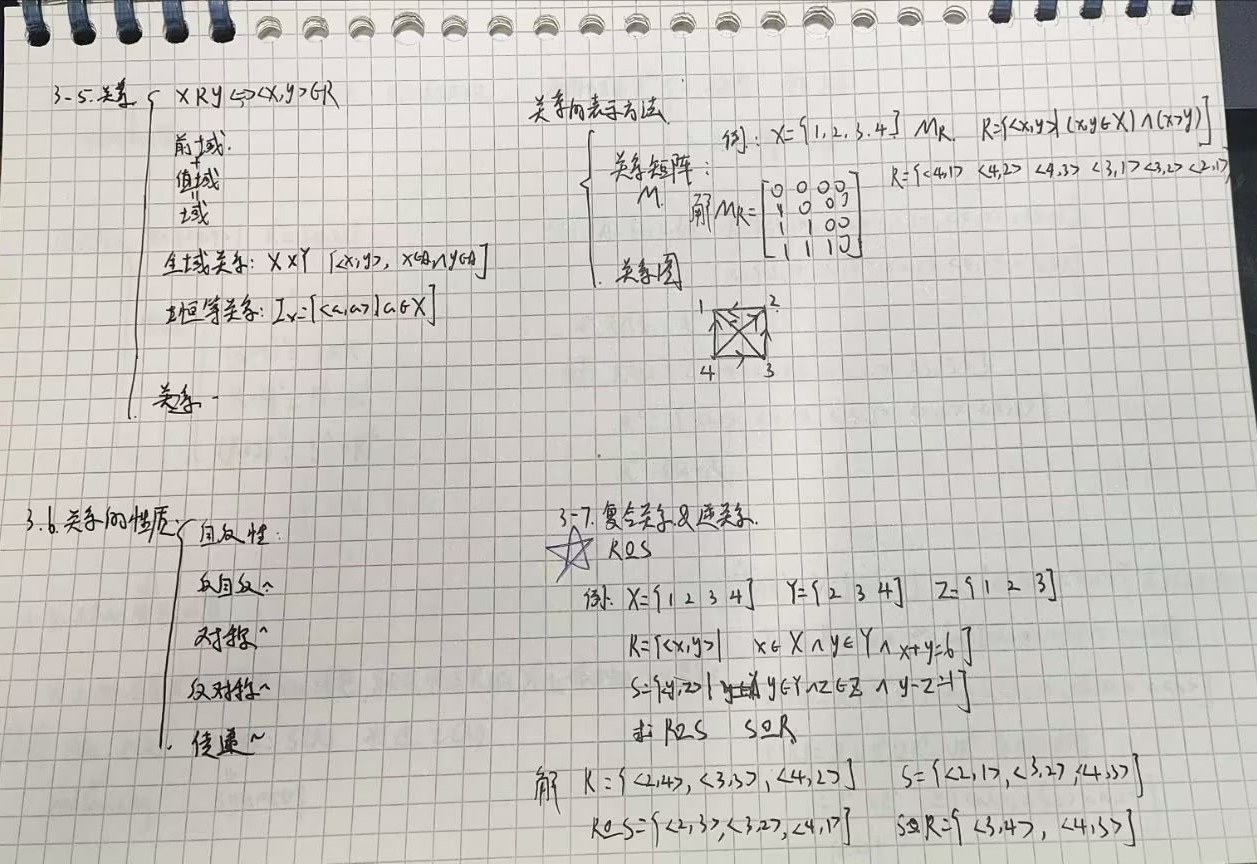 3-5.关系 { xRy⇔<x,y>∈R
前域.
+
值域
॥
域
全域关系: X×Y {<x,y>, x∈A∧y∈A}
恒等关系: Ix={<a,a>|a∈X}
关系
关系的表示方法
例: X={1,2,3,4} MR R={<x,y>|(x,y∈X)∧(x>y)}
关系矩阵:
M.
R={<4,1> <4,2> <4,3> <3,1> <3,2> <2,1>
解 MR=
0 0 0 0
1 0 0 0
1 1 0 0
1 1 1 0
关系图
1 2
4 3
3.6.关系的性质 { 自反性:
反自反~
对称~
反对称~
传递~
3-7.复合关系&逆关系.
☆ R∘S
例: X={1 2 3 4} Y={2 3 4} Z={1 2 3}
R={<x,y>| x∈X∧y∈Y∧x+y=6}
S={<y,z>| y∈Y∧z∈Z∧y-z=1}
求 R∘S S∘R
解 R={<2,4>,<3,3>,<4,2>} S={<2,1>,<3,2>,<4,3>}
R∘S={<2,3>,<3,2>,<4,1>} S∘R={<3,4>,<4,3>}